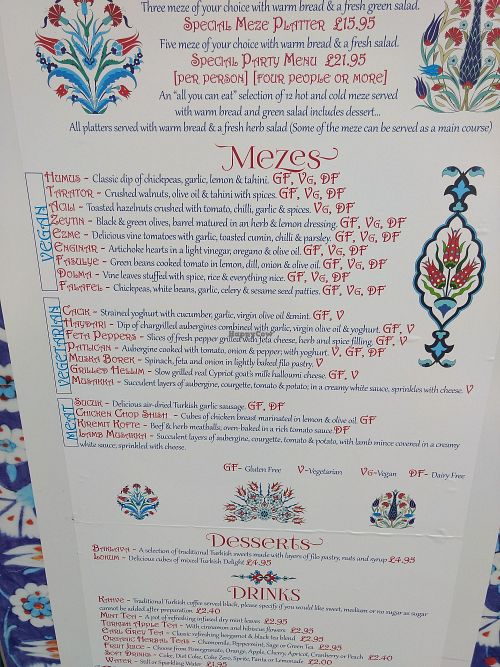 Three meze of your choice with warm bread & a fresh green salad.
Special Meze Platter £15.95
Five meze of your choice with warm bread & a fresh salad.
Special Party Menu £21.95
[per person] [four people or more]
An "all you can eat" selection of 12 hot and cold meze served
with warm bread and green salad includes dessert...
All platters served with warm bread & a fresh herb salad (Some of the meze can be served as a main course)
Mezes
VEGAN
Humus - Classic dip of chickpeas, garlic, lemon & tahini. GF, Vg, DF
Tarator - Crushed walnuts, olive oil & tahini with spices. GF, Vg, DF
Acili - Toasted hazelnuts crushed with tomato, chilli, garlic & spices. Vg, DF
Zeytin - Black & green olives, barrel matured in an herb & lemon dressing. GF, Vg, DF
Ezme - Delicious vine tomatoes with garlic, toasted cumin, chilli & parsley. GF, Vg, DF
Enginar - Artichoke hearts in a light vinegar, oregano & olive oil. GF, Vg, DF
Fasulye - Green beans cooked tomato in lemon, dill, onion & olive oil. GF, Vg, DF
Dolma - Vine leaves stuffed with spice, rice & everything nice. GF, Vg, DF
Falafel - Chickpeas, white beans, garlic, celery & sesame seed patties. GF, Vg, DF
VEGETARIAN
Cacik - Strained yoghurt with cucumber, garlic, virgin olive oil & mint. GF, V
Haydari - Dip of chargrilled aubergines combined with garlic, virgin olive oil & yoghurt. GF, V
Feta Peppers - Slices of fresh pepper grilled with feta cheese, herb and spice filling. GF, V
Patlican - Aubergine cooked with tomato, onion & pepper; with yoghurt. V, GF, DF
Muska Borek - Spinach, feta and onion in lightly baked filo pastry. V
Grilled Hellim - Slow grilled real Cypriot goat's milk halloumi cheese. GF, V
Musakka - Succulent layers of aubergine, courgette, tomato & potato; in a creamy white sauce, sprinkles with cheese. V
MEAT
Sucuk - Delicious air-dried Turkish garlic sausage. GF, DF
Chicken Chop Shish - Cubes of chicken breast marinated in lemon & olive oil. GF
Kiremit Kofte - Beef & herb meatballs; oven-baked in a rich tomato sauce DF
Lamb Musakka - Succulent layers of aubergine, courgette, tomato & potato, with lamb mince covered in a creamy
white sauce, sprinkled with cheese.
GF - Gluten Free V-Vegetarian Vg-Vegan DF - Dairy Free
HappyCow
Desserts
Baklava - A selection of traditional Turkish sweets made with layers of filo pastry, nuts and syrup £4.95
Lokum - Delicious cubes of mixed Turkish Delight £4.95
Drinks
Kahve - Traditional Turkish coffee served black, please specify if you would like sweet, medium or no sugar as sugar
cannot be added after preparation. £2.40
Mint Tea - A pot of refreshing infused dry mint leaves £2.95
Turkish Apple Tea - With cinnamon and hibiscus flowers £2.95
Earl Grey Tea - Classic refreshing bergamot & black tea blend £2.95
Organic Herbal Teas - Chamomile, Peppermint, Sage or Green Tea £2.95
Fruit Juice - Choose from Pomegranate, Orange, Apple, Cherry, Apricot, Cranberry or Peach £2.40
Soft Drinks - Coke, Diet Coke, Coke Zero, Sprite, Fanta or Lemonade £2.00
Water - Still or Sparkling Water £1.95